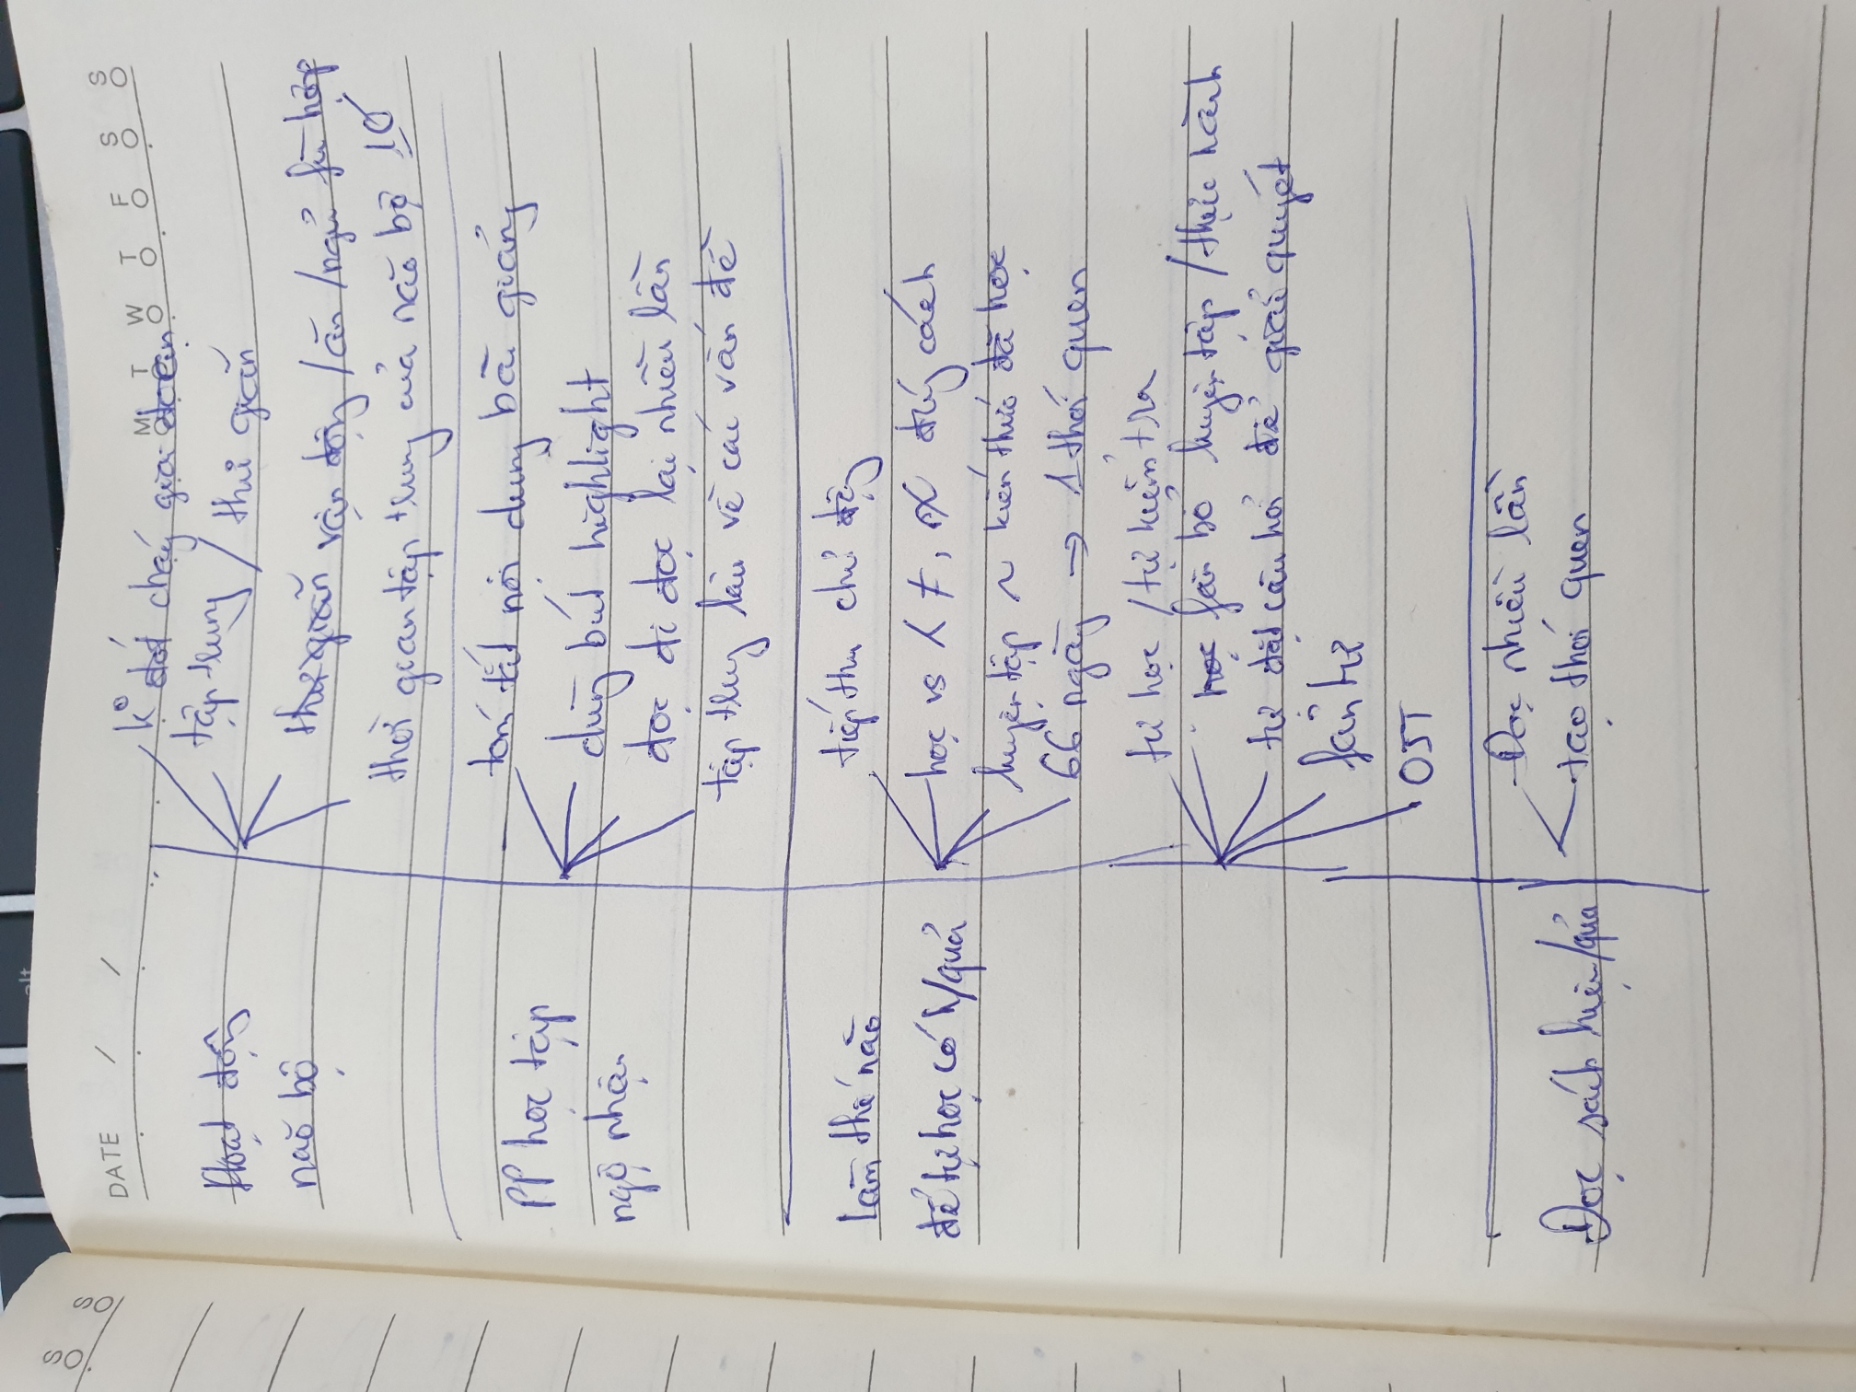 alt
DATE / /
M T W T F S S
S S
k° đốt cháy giai đoạn
Hoạt động
não bộ
tập trung / thư giãn
vận động / ăn / ngủ fù hợp
thời gian tập trung của não bộ 10'
PP học tập
ngộ nhận
tóm tắt nội dung bài giảng
dùng bút highlight
đọc đi đọc lại nhiều lần
tập trung lâu về các vấn đề
Làm thế nào
để tự học có h/quả
tiếp thu chủ động
học vs ≠, đúng cách
luyện tập ~ kiến thức đã học
66 ngày → 1 thói quen
tự học / tự kiểm tra
fân bổ luyện tập / thực hành
tự đặt câu hỏi để giải quyết
fản tư
OJT
Đọc sách hiệu/quả
Đọc nhiều lần
tạo thói quen